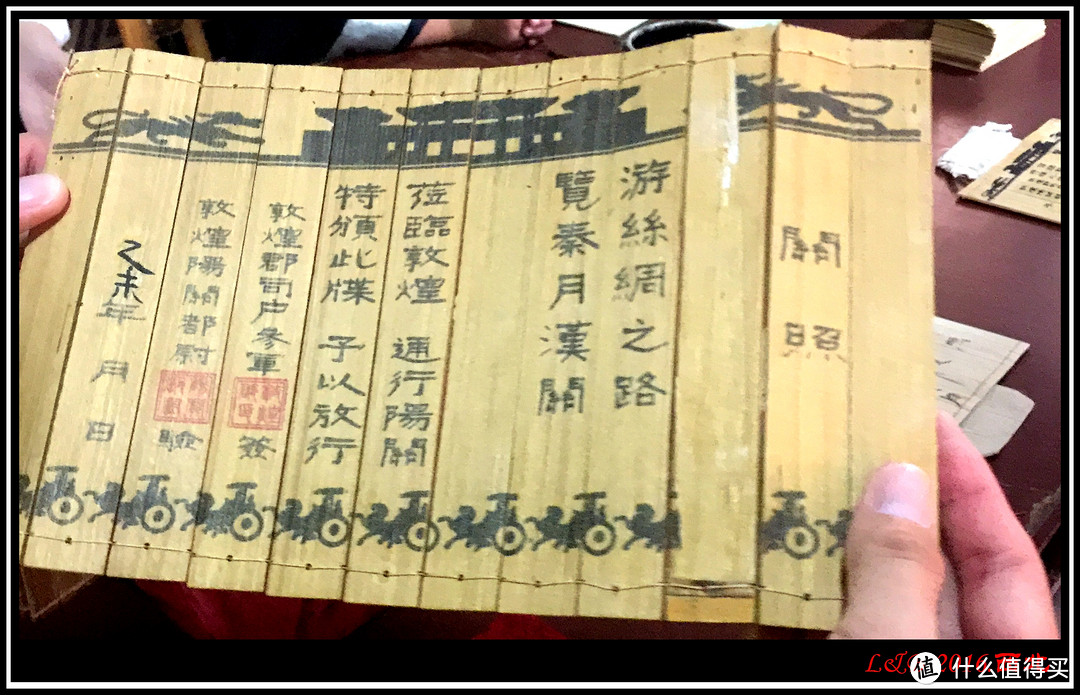 關照
游絲綢之路
覽秦月漢關
莅臨敦煌 通行陽關
特頒此牒 予以放行
敦煌郡司户參軍 签
敦煌陽關都尉 驗
乙未年 月 日
2016
值 什么值得买